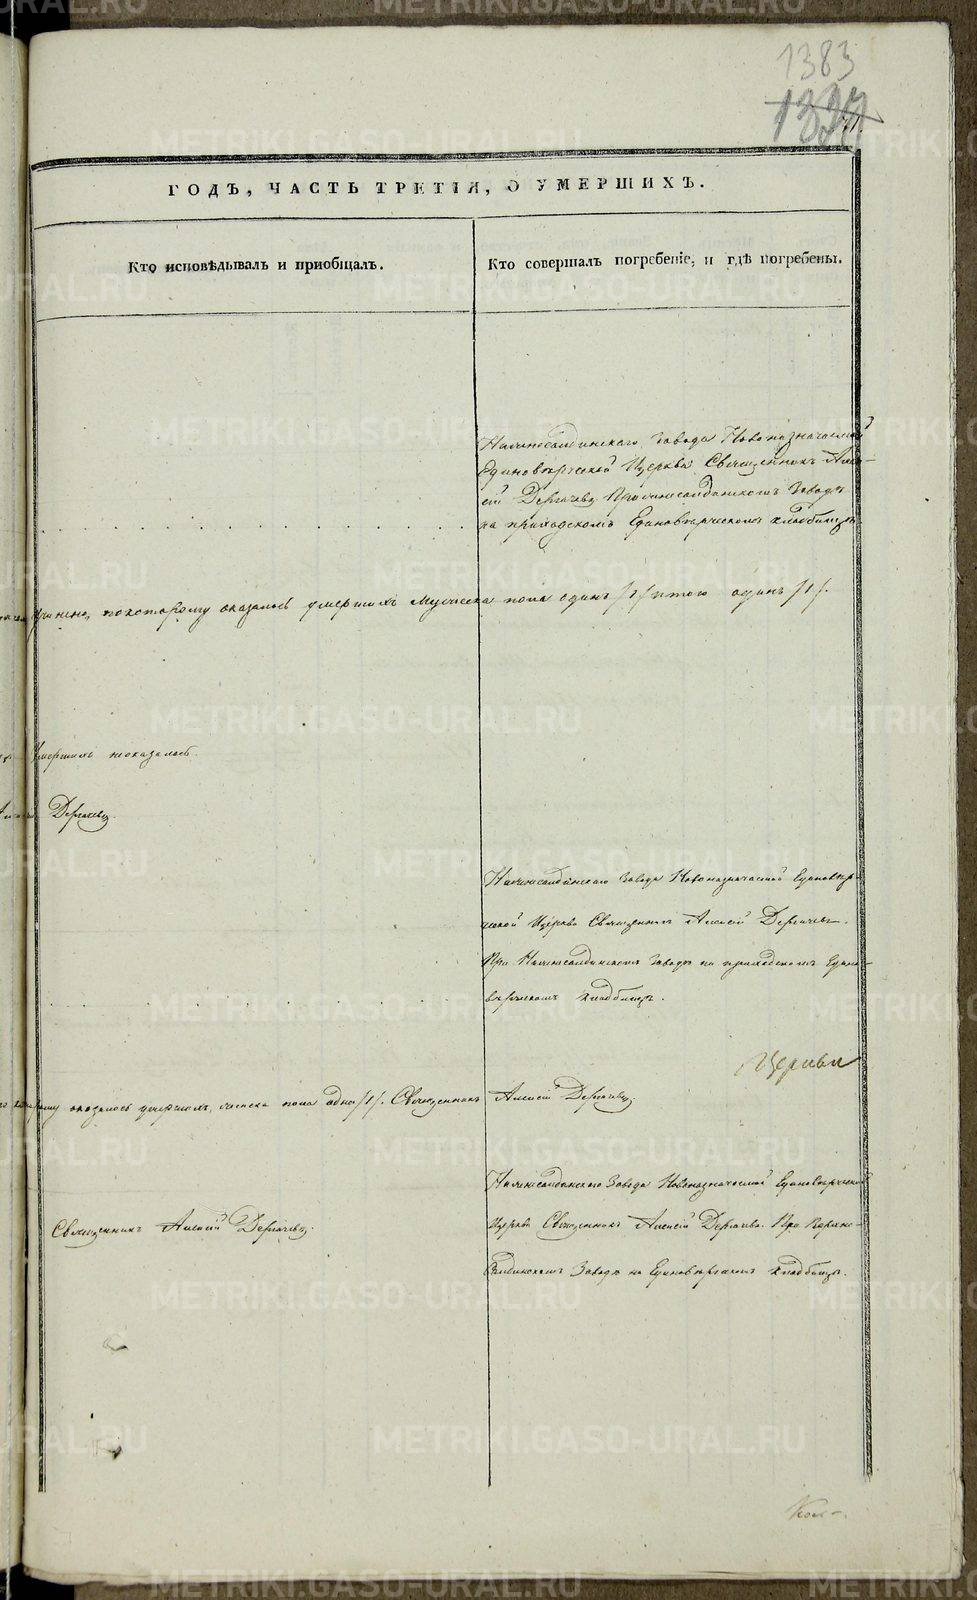 1383
1327
ГОДЪ, ЧАСТЬ ТРЕТІЯ, О УМЕРШИХЪ.
Кто исповѣдывалъ и пріобщалъ.
Кто совершалъ погребеніе, и гдѣ погребены.
Нижнесалдинскаго Завода Новоназначаемой
Единовѣрческой Церкви Священникъ Алек-
сѣй Дергачевъ При Нижнесалдинскомъ Заводѣ
на приходскомъ Единовѣрческомъ кладбищѣ
учинено, по которому оказалось умершихъ мужеска пола одинъ /1/ итого одинъ /1/.
умершихъ не оказалось.
Дергачевъ.
Нижнесалдинскаго Завода Новоназначаемой Единовѣр-
ческой Церкви Священникъ Алексѣй Дергачевъ.
При Нижнесалдинскомъ Заводѣ на приходскомъ Едино-
вѣрческомъ кладбищѣ.
Церкви
оказалось умершихъ женска пола одна /1/. Священникъ Алексѣй Дергачевъ.
Нижнесалдинскаго Завода Новоназначаемой Единовѣрческой
Священникъ Алексѣй Дергачевъ.
Церкви Священникъ Алексѣй Дергачевъ. При Верхне-
Салдинскомъ Заводѣ на Единовѣрческомъ кладбищѣ.
METRIKI.GASO-URAL.RU